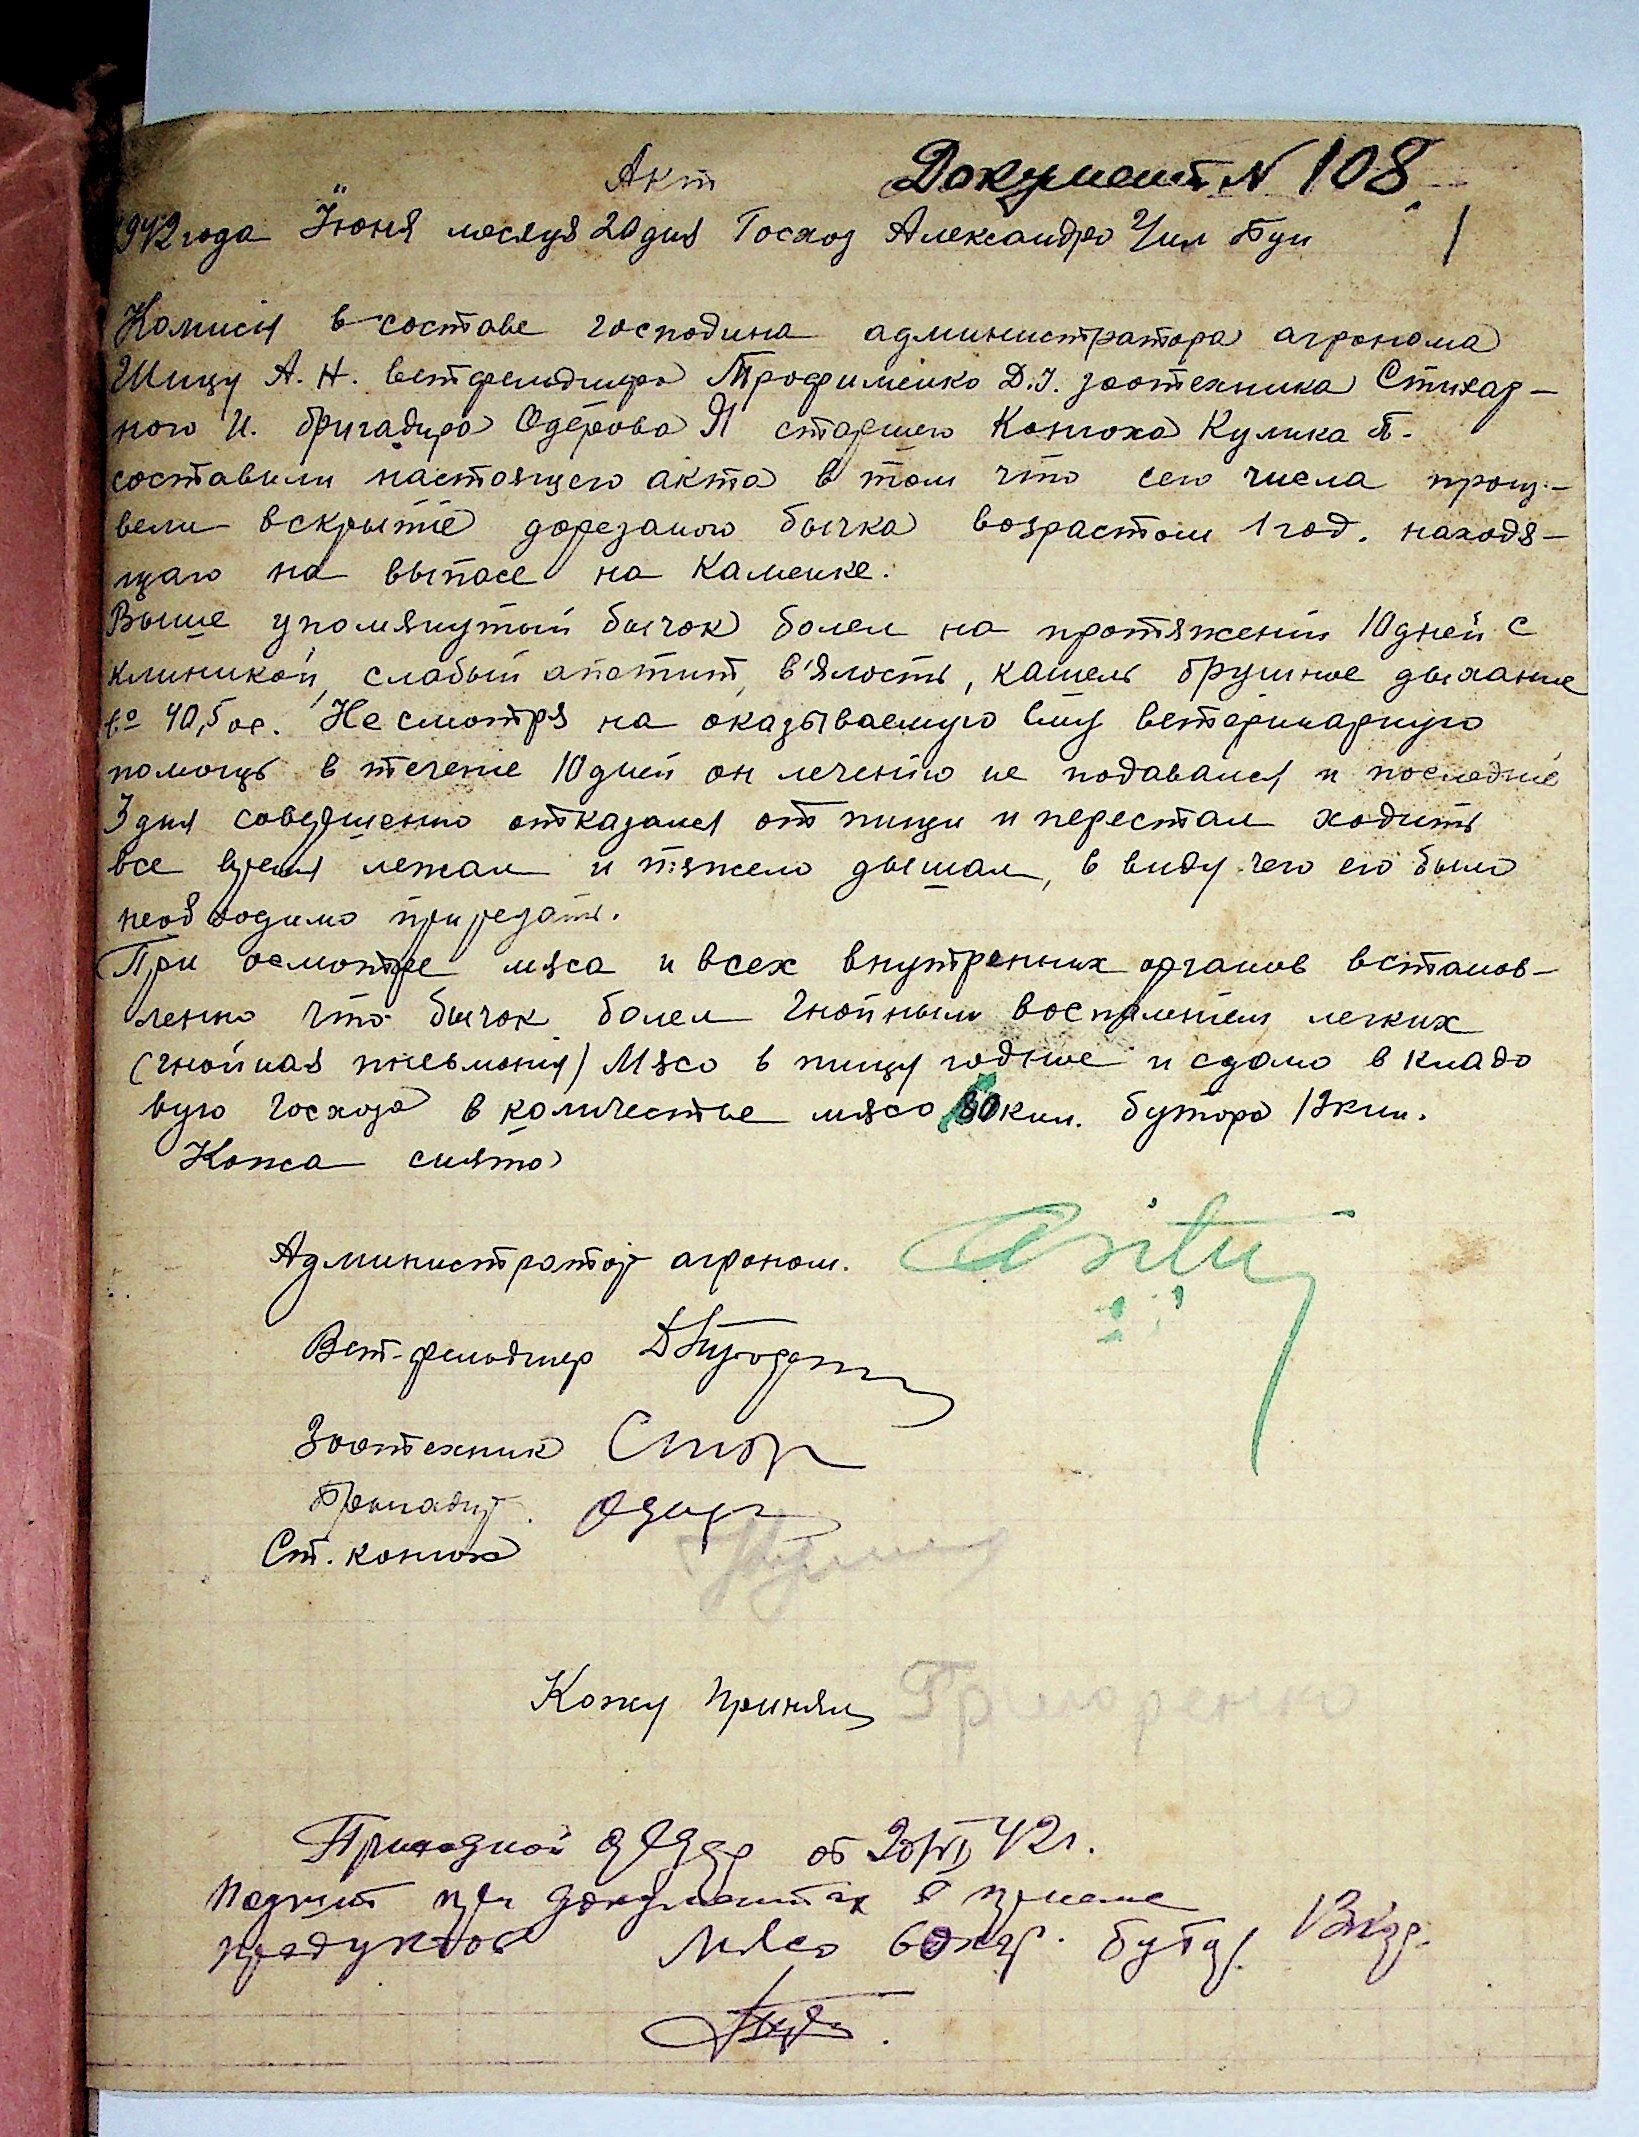 Акт Документ N 108.
1942 года Июня месяця 20 дня Госхоз Александро Чил Буи
Комисия в составе господина администратора агронома
Шицу А. Н. ветфельдшера Трофименко Д. І. зоотехника Стихар-
ного И. бригадира Одерова Я старшего Конюха Кулика П.
составили настоящего акта в том что сего числа произ-
вели вскрытие дорезаного бычка возрастом 1 год. находя-
щаго на выпасе на Каменке.
Выше упомянутый бычок болел на протяжении 10 дней с
клиникой, слабый апетит, в'ялость, кашель брушное дыхание
to 40,5 ос. Не смотря на оказываемую ему ветеринарную
помощь в течение 10 дней он лечению не подавался и последние
3 дня совершенно отказался от пищи и перестал ходить
все время лежал и тяжело дышал, в виду чего его было
необходимо прирезать.
При осмотре мяса и всех внутренних органов встанов-
ленно что бычок болел гнойным воспалением легких
(гнойная пневмония) Мясо в пищу годное и сдано в кладо
вую госхоза в количестве мясо 60 кил. бутора 13 кил.
Кожа снята
Администратор агроном.
Вет-фельдшер
Зоотехник
Бригадир.
Ст. конюх
Кожу принял Григоренко
Приходной от 20/VI 42 г.
при документах в приеме
продуктов Мясо 60 кгр. бутор 13 кгр.